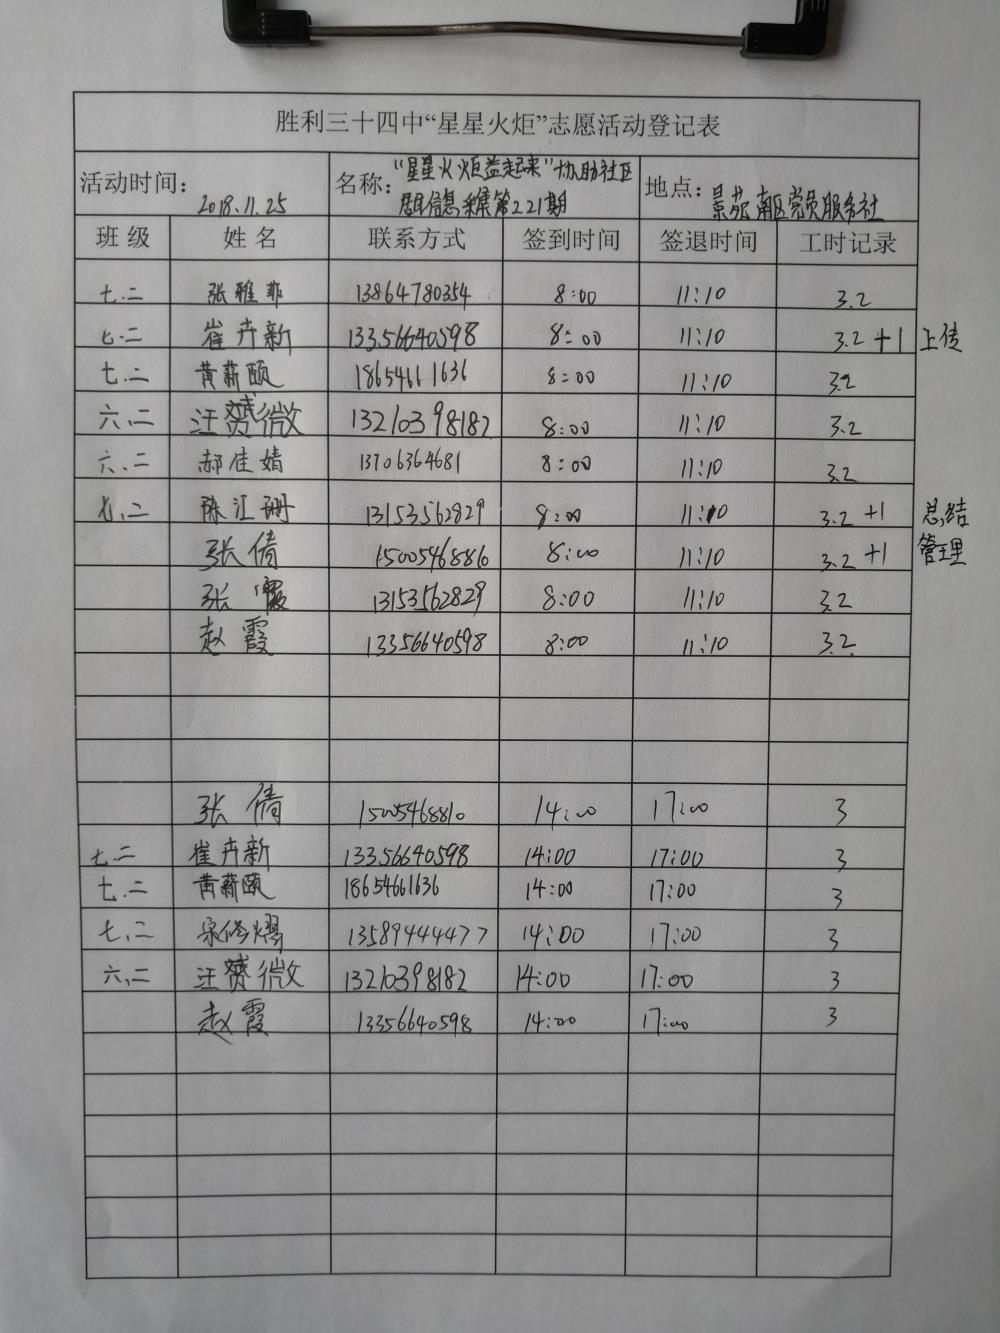 胜利三十四中“星星火炬”志愿活动登记表
活动时间: 2018.11.25 名称: “星星火炬益起来”协助社区 地点: 景苑南区党员服务社
居民信息采集第221期
班级 姓名 联系方式 签到时间 签退时间 工时记录
七.二 张雅菲 13864780354 8:00 11:10 3.2
七.二 崔卉新 13356640598 8:00 11:10 3.2 +1 上传
七.二 黄薪颐 18654661636 8:00 11:10 3.2
六.二 汪赟微 13210398182 8:00 11:10 3.2
六.二 郝佳婧 13706364681 8:00 11:10 3.2
七.二 陈汇珊 13153562829 8:00 11:10 3.2 +1 总结
张倩 15005468810 8:00 11:10 3.2 +1 管理
张 13153562829 8:00 11:10 3.2
赵霞 13356640598 8:00 11:10 3.2
张倩 15005468810 14:00 17:00 3
七.二 崔卉新 13356640598 14:00 17:00 3
七.二 黄薪颐 18654661636 14:00 17:00 3
七.二 宋修熠 13589444477 14:00 17:00 3
六.二 汪赟微 13210398182 14:00 17:00 3
赵霞 13356640598 14:00 17:00 3